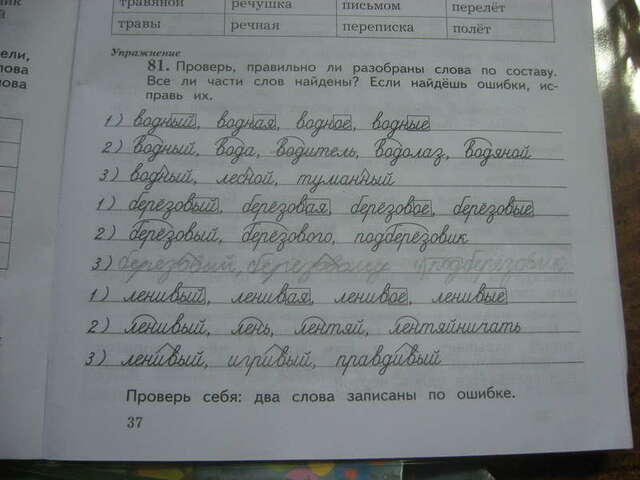 ик
травяной речушка письмом перелёт
травы речная переписка полёт
ели,
лова
нова
Упражнение
81. Проверь, правильно ли разобраны слова по составу.
Все ли части слов найдены? Если найдёшь ошибки, ис-
правь их.
1) водный, водная, водное, водные
2) водный, вода, водитель, водолаз, водяной
3) водный, лесной, туманный
1) берёзовый, берёзовая, берёзовое, берёзовые
2) берёзовый, берёзового, подберёзовик
3) берёзовый, берёзовому подберёзовик
1) ленивый, ленивая, ленивое, ленивые
2) ленивый, лень, лентяй, лентяйничать
3) ленивый, игривый, правдивый
Проверь себя: два слова записаны по ошибке.
37